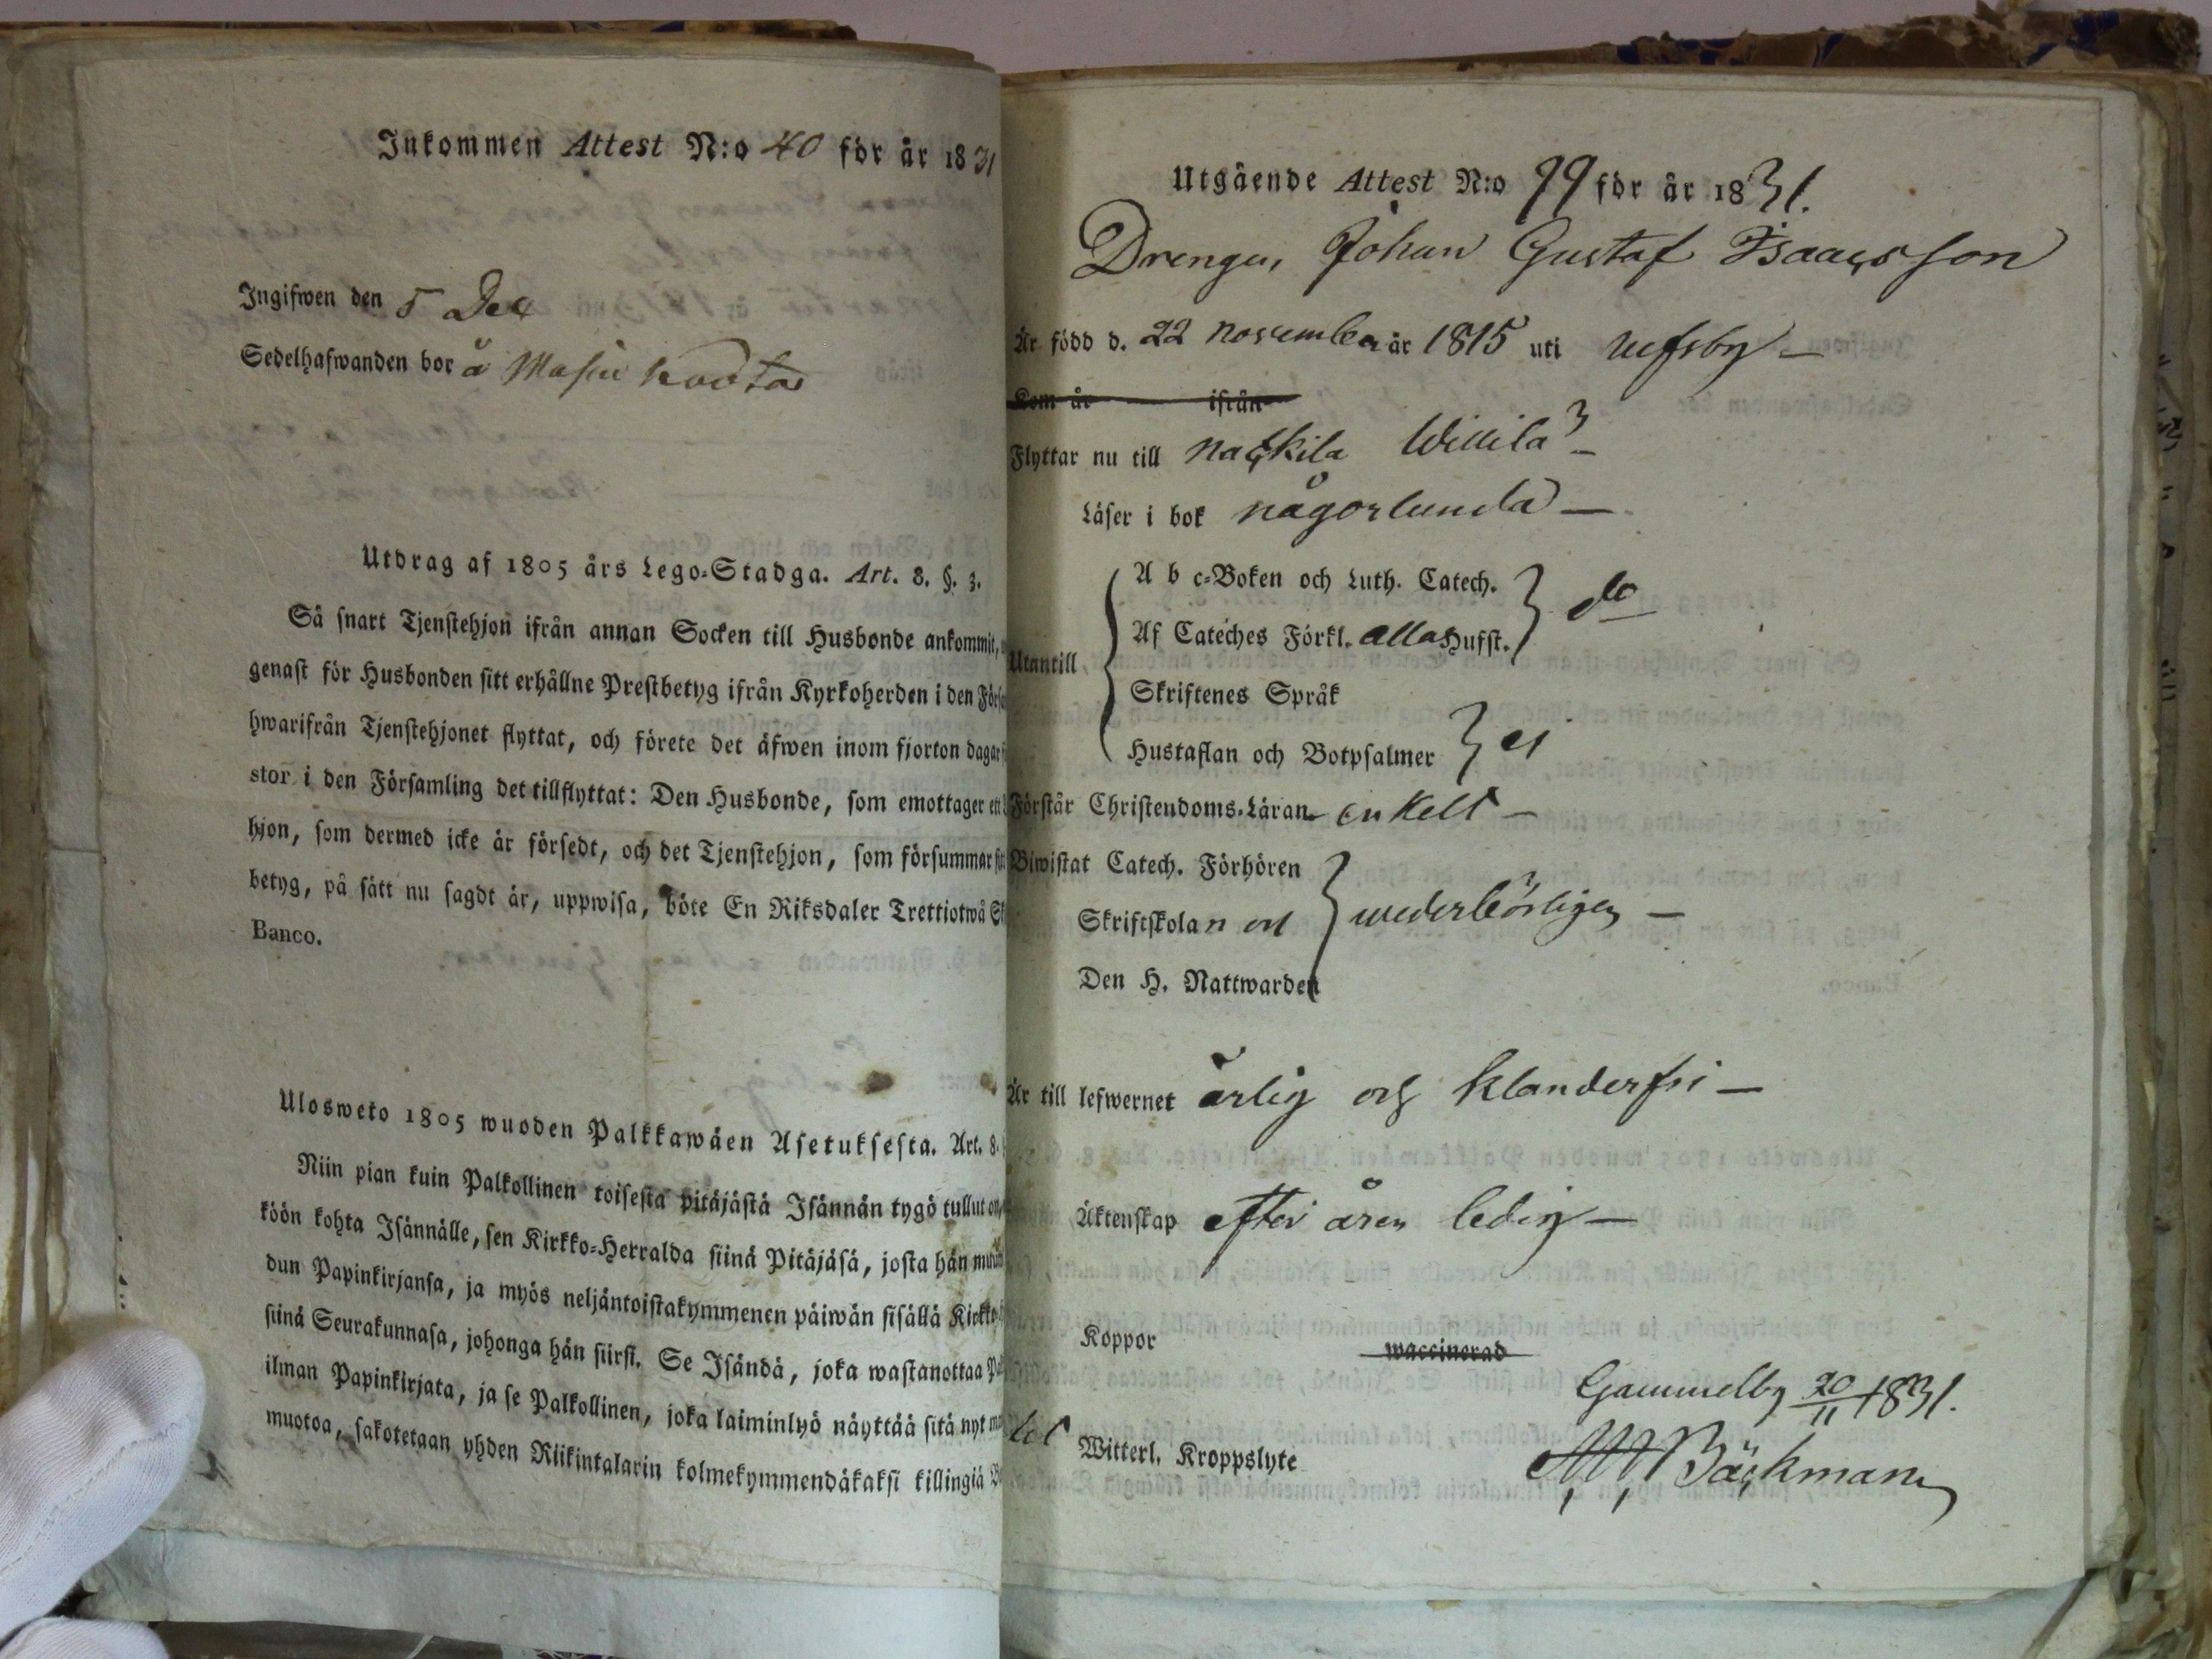 Inkommen Attest N:o 40 för år 1831
Ingifwen den 5 Dec
Sedelhafwanden bor å
Utdrag af 1805 års Lego-Stadga. Art. 8. §. 3.
Så snart Tjenstehjon ifrån annan Socken till Husbonde ankommit,
genast för Husbonden sitt erhållne Prestbetyg ifrån Kyrkoherden i den
hwarifrån Tjenstehjonet flyttat, och förete det äfwen inom fjorton dagar
stor i den Församling det tillflyttat: Den Husbonde, som emottager
hjon, som dermed icke är försedt, och det Tjenstehjon, som försummar
betyg, på sätt nu sagdt är, uppwisa, böte En Riksdaler Trettiotwå
Banco.
Ulosweto 1805 wuoden Palkkawäen Asetuksesta. Art. 8.
Niin pian kuin Palkollinen toisesta pitäjästä Isännän tygö tullut on,
köön kohta Isännälle, sen Kirkko-Herralda siinä Pitäjäsä, josta hän
dun Papinkirjansa, ja myös neljäntoistakymmenen päiwän sisällä
siinä Seurakunnasa, johonga hän siirsi. Se Isändä, joka wastanottaa
ilman Papinkirjata, ja se Palkollinen, joka laiminlyö näyttää sitä nyt
muotoa, sakotetaan yhden Riikintalarin kolmekymmendäkaksi killingiä
Utgående Attest N:o 99 för år 1831.
Drengen Johan Gustaf Isaacsson
Är född d. 22 november år 1815 uti Ulfsby –
Kom år ifrån
Flyttar nu till Nackila Willila –
Läser i bok någorlunda –
A b c-Boken och Luth. Catech.
Af Cateches Förkl. alla Hufst. } do
Utantill
Skriftenes Språk
Hustaflan och Botpsalmer } ej
Förstår Christendoms-Läran enkelt –
Biwistat Catech. Förhören
Skriftskolan och } wederbörligen –
Den H. Nattwarden
Är till lefwernet ärlig och klanderfri –
Äktenskap efter åren ledig –
Koppor waccinerad
Gammelby 20/11 1831.
Witterl. Kroppslyte
Bäckman